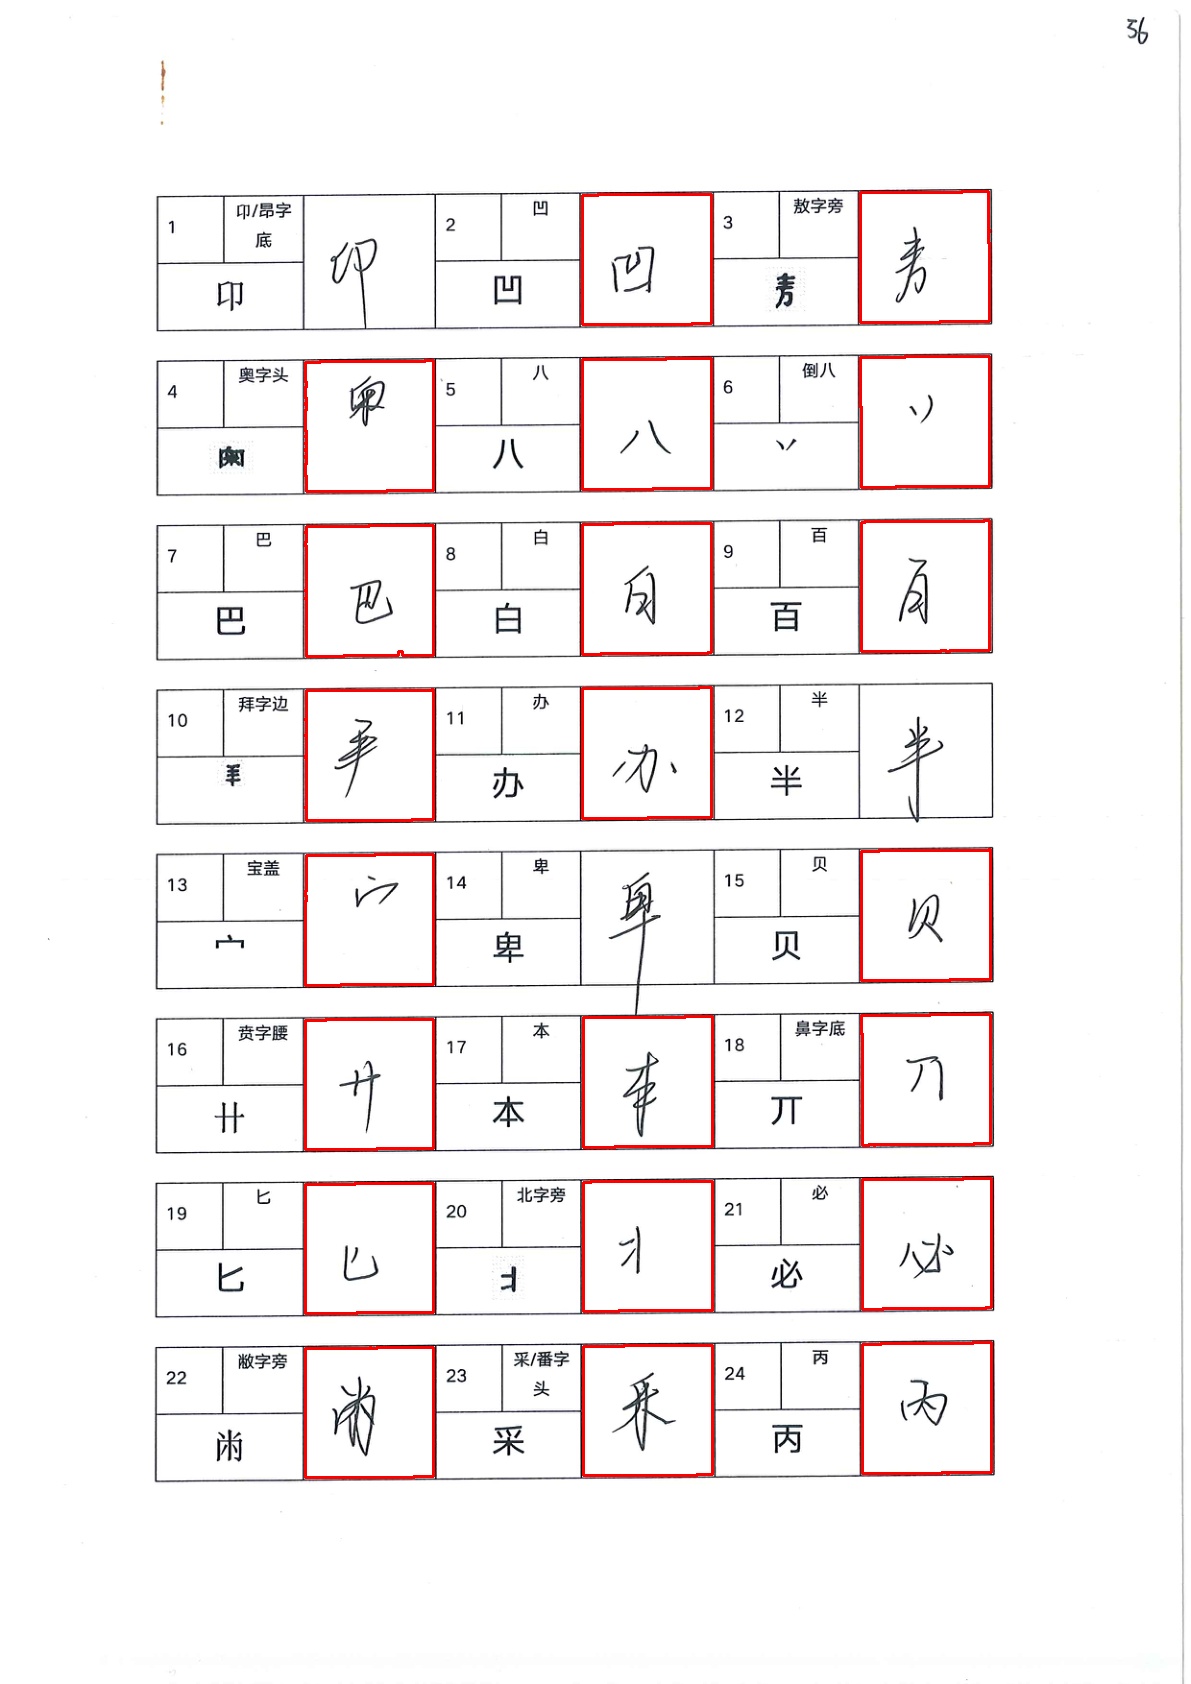 56
1 卬/昂字底 卬 卬 2 凹 凹 凹 3 敖字旁
4 奥字头 5 八 八 八 6 倒八 丷 丷
7 巴 巴 巴 8 白 白 白 9 百 百 百
10 拜字边 11 办 办 办 12 半 半 半
13 宝盖 宀 宀 14 卑 卑 卑 15 贝 贝 贝
16 贲字腰 卄 卄 17 本 本 本 18 鼻字底 丌 丌
19 匕 匕 匕 20 北字旁 21 必 必 必
22 敝字旁 㡀 㡀 23 采/番字头 采 采 24 丙 丙 丙